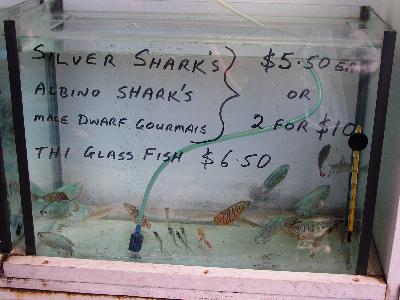 SILVER SHARK'S $5.50 EA
ALBINO SHARK'S OR
MALE DWARF GOURMAIS 2 FOR $10
THI GLASS FISH $6.50